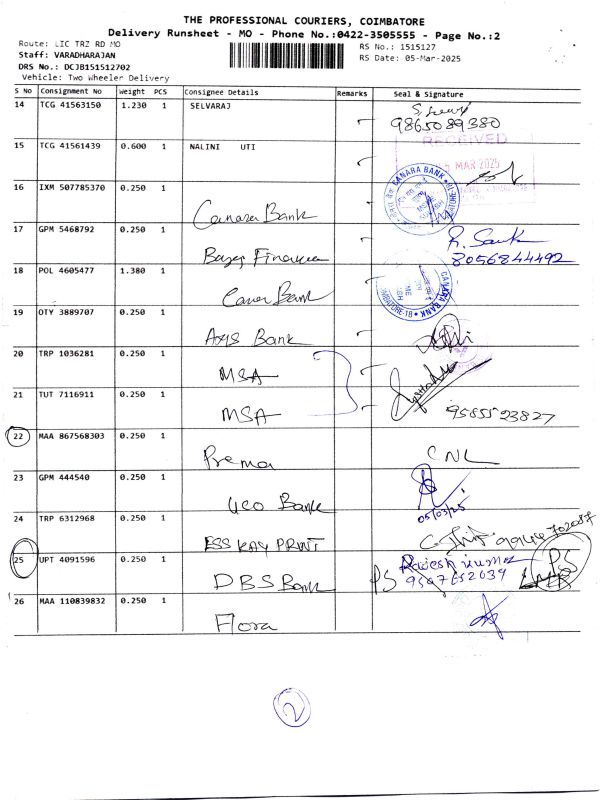 THE PROFESSIONAL COURIERS, COIMBATORE
Delivery Runsheet - MO - Phone No.:0422-3505555 - Page No.:2
Route: LIC TRZ RD MO
Staff: VARADHARAJAN
DRS No.: DCJB151512702
Vehicle: Two Wheeler Delivery
RS No.: 1515127
RS Date: 05-Mar-2025
S No Consignment No Weight PCS Consignee Details Remarks Seal & Signature
14 TCG 41563150 1.230 1 SELVARAJ
9865089380
15 TCG 41561439 0.600 1 NALINI UTI
RECEIVED
MAR 2025
16 IXM 507785370 0.250 1 Canara Bank
CANARA BANK
17 GPM 5468792 0.250 1 Bajaj Finance
8056844492
18 POL 4605477 1.380 1 Canara Bank
CANARA BANK
19 OTY 3889707 0.250 1 Axis Bank
20 TRP 1036281 0.250 1 MSA
21 TUT 7116911 0.250 1 MSA
9585523827
22 MAA 867568303 0.250 1 Prema
CNL
23 GPM 444540 0.250 1 Uco Bank
05/03/25
24 TRP 6312968 0.250 1 ESS KAY PRINT
25 UPT 4091596 0.250 1 DBS Bank
PS Radesh kumar PS
9567652039
26 MAA 110839832 0.250 1 Flora
2